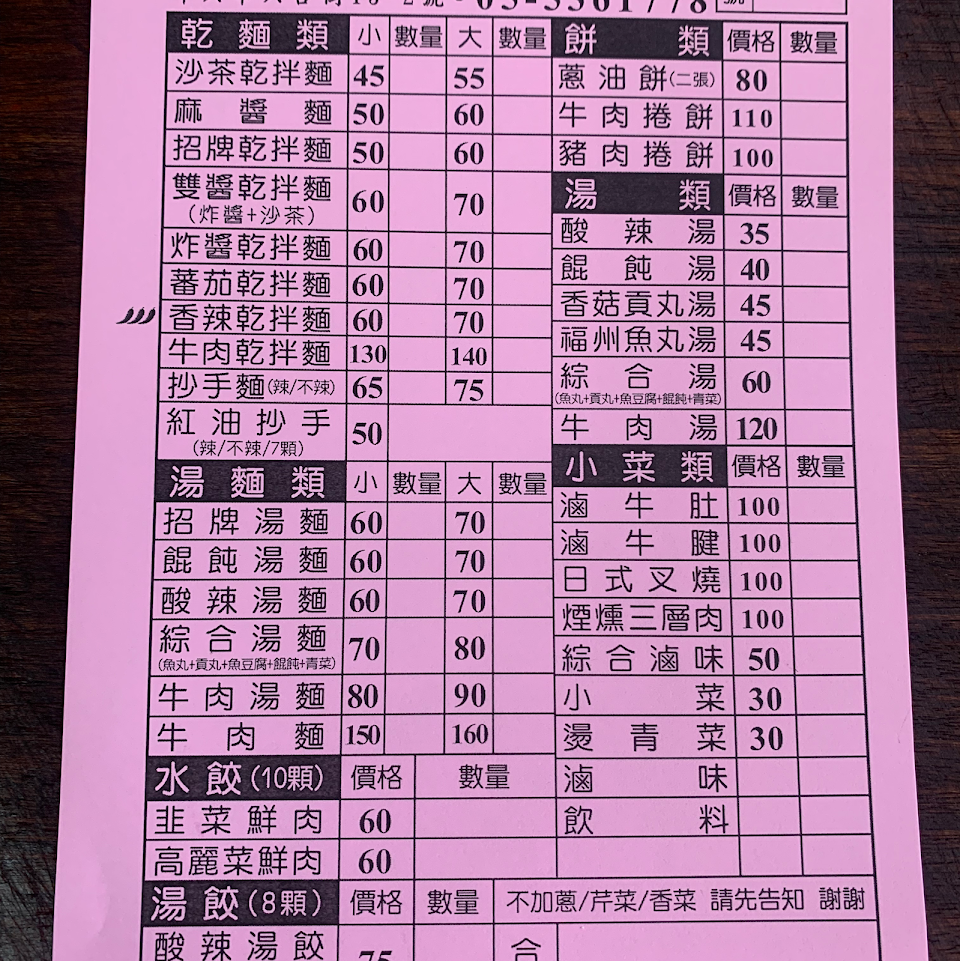 乾麵類 小 數量 大 數量
沙茶乾拌麵 45 55
麻醬麵 50 60
招牌乾拌麵 50 60
雙醬乾拌麵 60 70
(炸醬+沙茶)
炸醬乾拌麵 60 70
蕃茄乾拌麵 60 70
香辣乾拌麵 60 70
牛肉乾拌麵 130 140
抄手麵(辣/不辣) 65 75
紅油抄手 50
(辣/不辣/7顆)
湯麵類 小 數量 大 數量
招牌湯麵 60 70
餛飩湯麵 60 70
酸辣湯麵 60 70
綜合湯麵 70 80
(魚丸+貢丸+魚豆腐+餛飩+青菜)
牛肉湯麵 80 90
牛肉麵 150 160
水餃(10顆) 價格 數量
韭菜鮮肉 60
高麗菜鮮肉 60
湯餃(8顆) 價格 數量
酸辣湯餃 75
餅類 價格 數量
蔥油餅(二張) 80
牛肉捲餅 110
豬肉捲餅 100
湯類 價格 數量
酸辣湯 35
餛飩湯 40
香菇貢丸湯 45
福州魚丸湯 45
綜合湯 60
(魚丸+貢丸+魚豆腐+餛飩+青菜)
牛肉湯 120
小菜類 價格 數量
滷牛肚 100
滷牛腱 100
日式叉燒 100
煙燻三層肉 100
綜合滷味 50
小菜 30
燙青菜 30
滷味
飲料
不加蔥/芹菜/香菜 請先告知 謝謝
合